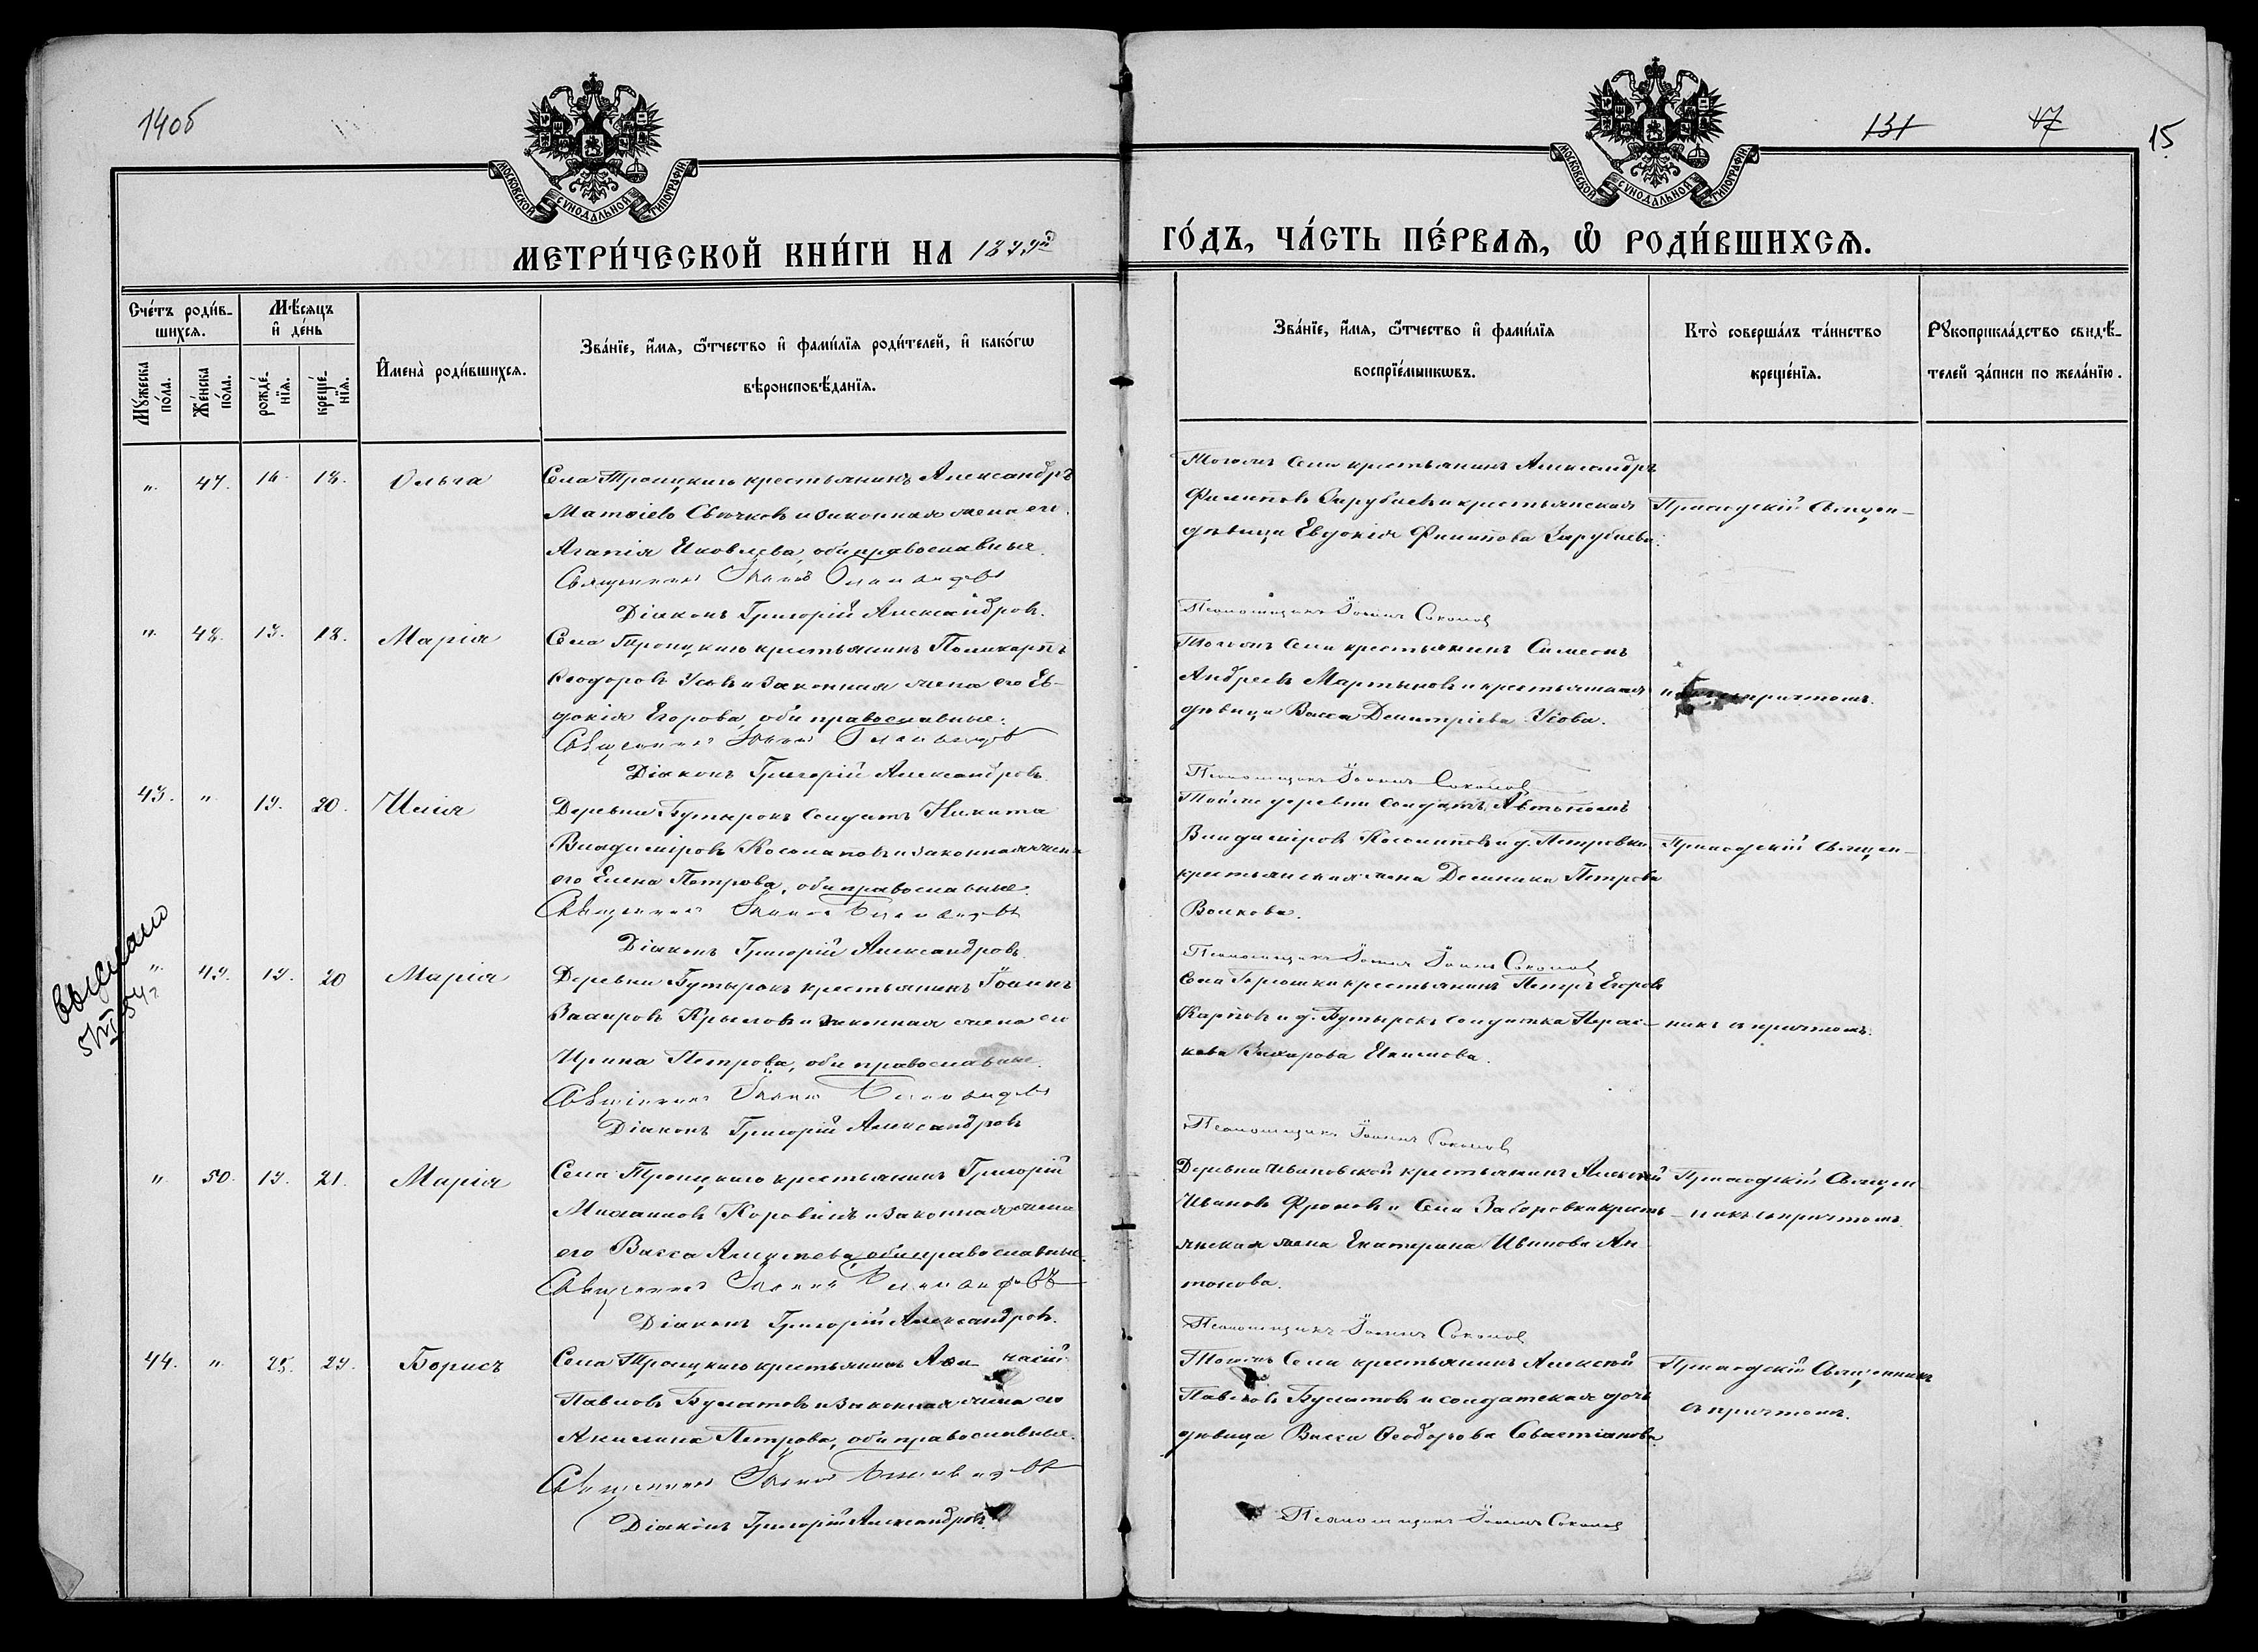 140б
131 17 15
МОСКОВСКОЙ СУНОДАЛЬНОЙ ТИПОГРАФІИ
МОСКОВСКОЙ СУНОДАЛЬНОЙ ТИПОГРАФІИ
МЕТРИ́ЧЕСКОЙ КНИ́ГИ НА 1899й
ГО́ДЪ, ЧА́СТЬ ПЕ́РВАЯ, Ѡ РОДИ́ВШИХСЯ.
Сче́тъ роди́в-
шихся.
Мꙋ́жеска по́ла.
Же́нска по́ла.
Мѣ́сяцъ
и҆ де́нь
рожде́-
нїя.
креще́-
нїя.
И҆мена̀ роди́вшихся.
Зва́нїе, и҆́мя, ѻ҆́тчество и҆ фами́лїя роди́телей, и҆ како́гѡ
вѣроисповѣ́данїя.
Зва́нїе, и҆́мя, ѻ҆́тчество и҆ фами́лїя
воспрїе́мникѡвъ.
Кто̀ соверша́лъ та́инство
креще́нїя.
Рꙋкоприкла́дство свидѣ́-
телей за́писи по жела́нїю.
" 47. 16. 18. Ольга
Села Троицкаго крестьянинъ Александръ
Матѳіевъ Свѣчковъ и законная жена его
Агапія Яковлева, оба православные.
Священникъ Іоаннъ
Діаконъ Григорій Александровъ.
Тогожъ села крестьянинъ Александръ
Филипповъ Зарубаевъ и крестьянская
дѣвица Евдокія Филиппова Зарубаева.
Псаломщикъ Іоаннъ Соколовъ
Приходскій Священ-
" 48. 13. 18. Марія
Села Троицкаго крестьянинъ Поликарпъ
Ѳеодоровъ Усовъ и законная жена его Ев-
докія Егорова, оба православные.
Священникъ Іоаннъ
Діаконъ Григорій Александровъ.
Тогожъ села крестьянинъ Симеонъ
Андреевъ Мартыновъ и крестьянская
дѣвица Васса Димитріева Усова.
Псаломщикъ Іоаннъ Соколовъ
причтомъ.
43. " 19. 20. Илія
Деревни Бутырокъ солдатъ Никита
Владиміровъ Косолаповъ и законная жена
его Елена Петрова, оба православные.
Священникъ Іоаннъ
Діаконъ Григорій Александровъ.
Тойже деревни солдатъ
Владиміровъ Косолаповъ и д. Петровки
крестьянская жена Домника Петрова
Волкова.
Псаломщикъ Іоаннъ Соколовъ
Приходскій Священ-
выслано
5/VI 54 г
" 49. 19. 20 Марія
Деревни Бутырокъ крестьянинъ Іоаннъ
Захаровъ Крыловъ и законная жена его
Ирина Петрова, оба православные.
Священникъ Іоаннъ
Діаконъ Григорій Александровъ
крестьянинъ Петръ Егоровъ
Карповъ и д. Бутырокъ солдатка Парас-
кева Захарова Екимова.
Псаломщикъ Іоаннъ Соколовъ
никъ съ причтомъ.
" 50. 19. 21. Марія
Села Троицкаго крестьянинъ Григорій
Михаиловъ Коровинъ и законная жена
его Васса Алексѣева, оба православные.
Священникъ Іоаннъ
Діаконъ Григорій Александровъ.
Деревни Ивановской крестьянинъ Алексѣй
Ивановъ Фроловъ и села Заборовки кресть-
янская жена Екатерина Иванова Ан-
тонова.
Псаломщикъ Іоаннъ Соколовъ
Приходскій Священ
никъ съ причтомъ.
44. " 25. 29. Борисъ
Села Троицкаго крестьянинъ
Павловъ Булатовъ и законная жена его
Акилина Петрова, оба православные.
Священникъ Іоаннъ
Діаконъ Григорій Александровъ.
Тогожъ села крестьянинъ Алексѣй
Павловъ Булатовъ и солдатская дочь
дѣвица Васса Ѳеодорова Севастіанова.
Псаломщикъ Іоаннъ Соколовъ
Приходскій Священникъ
съ причтомъ.